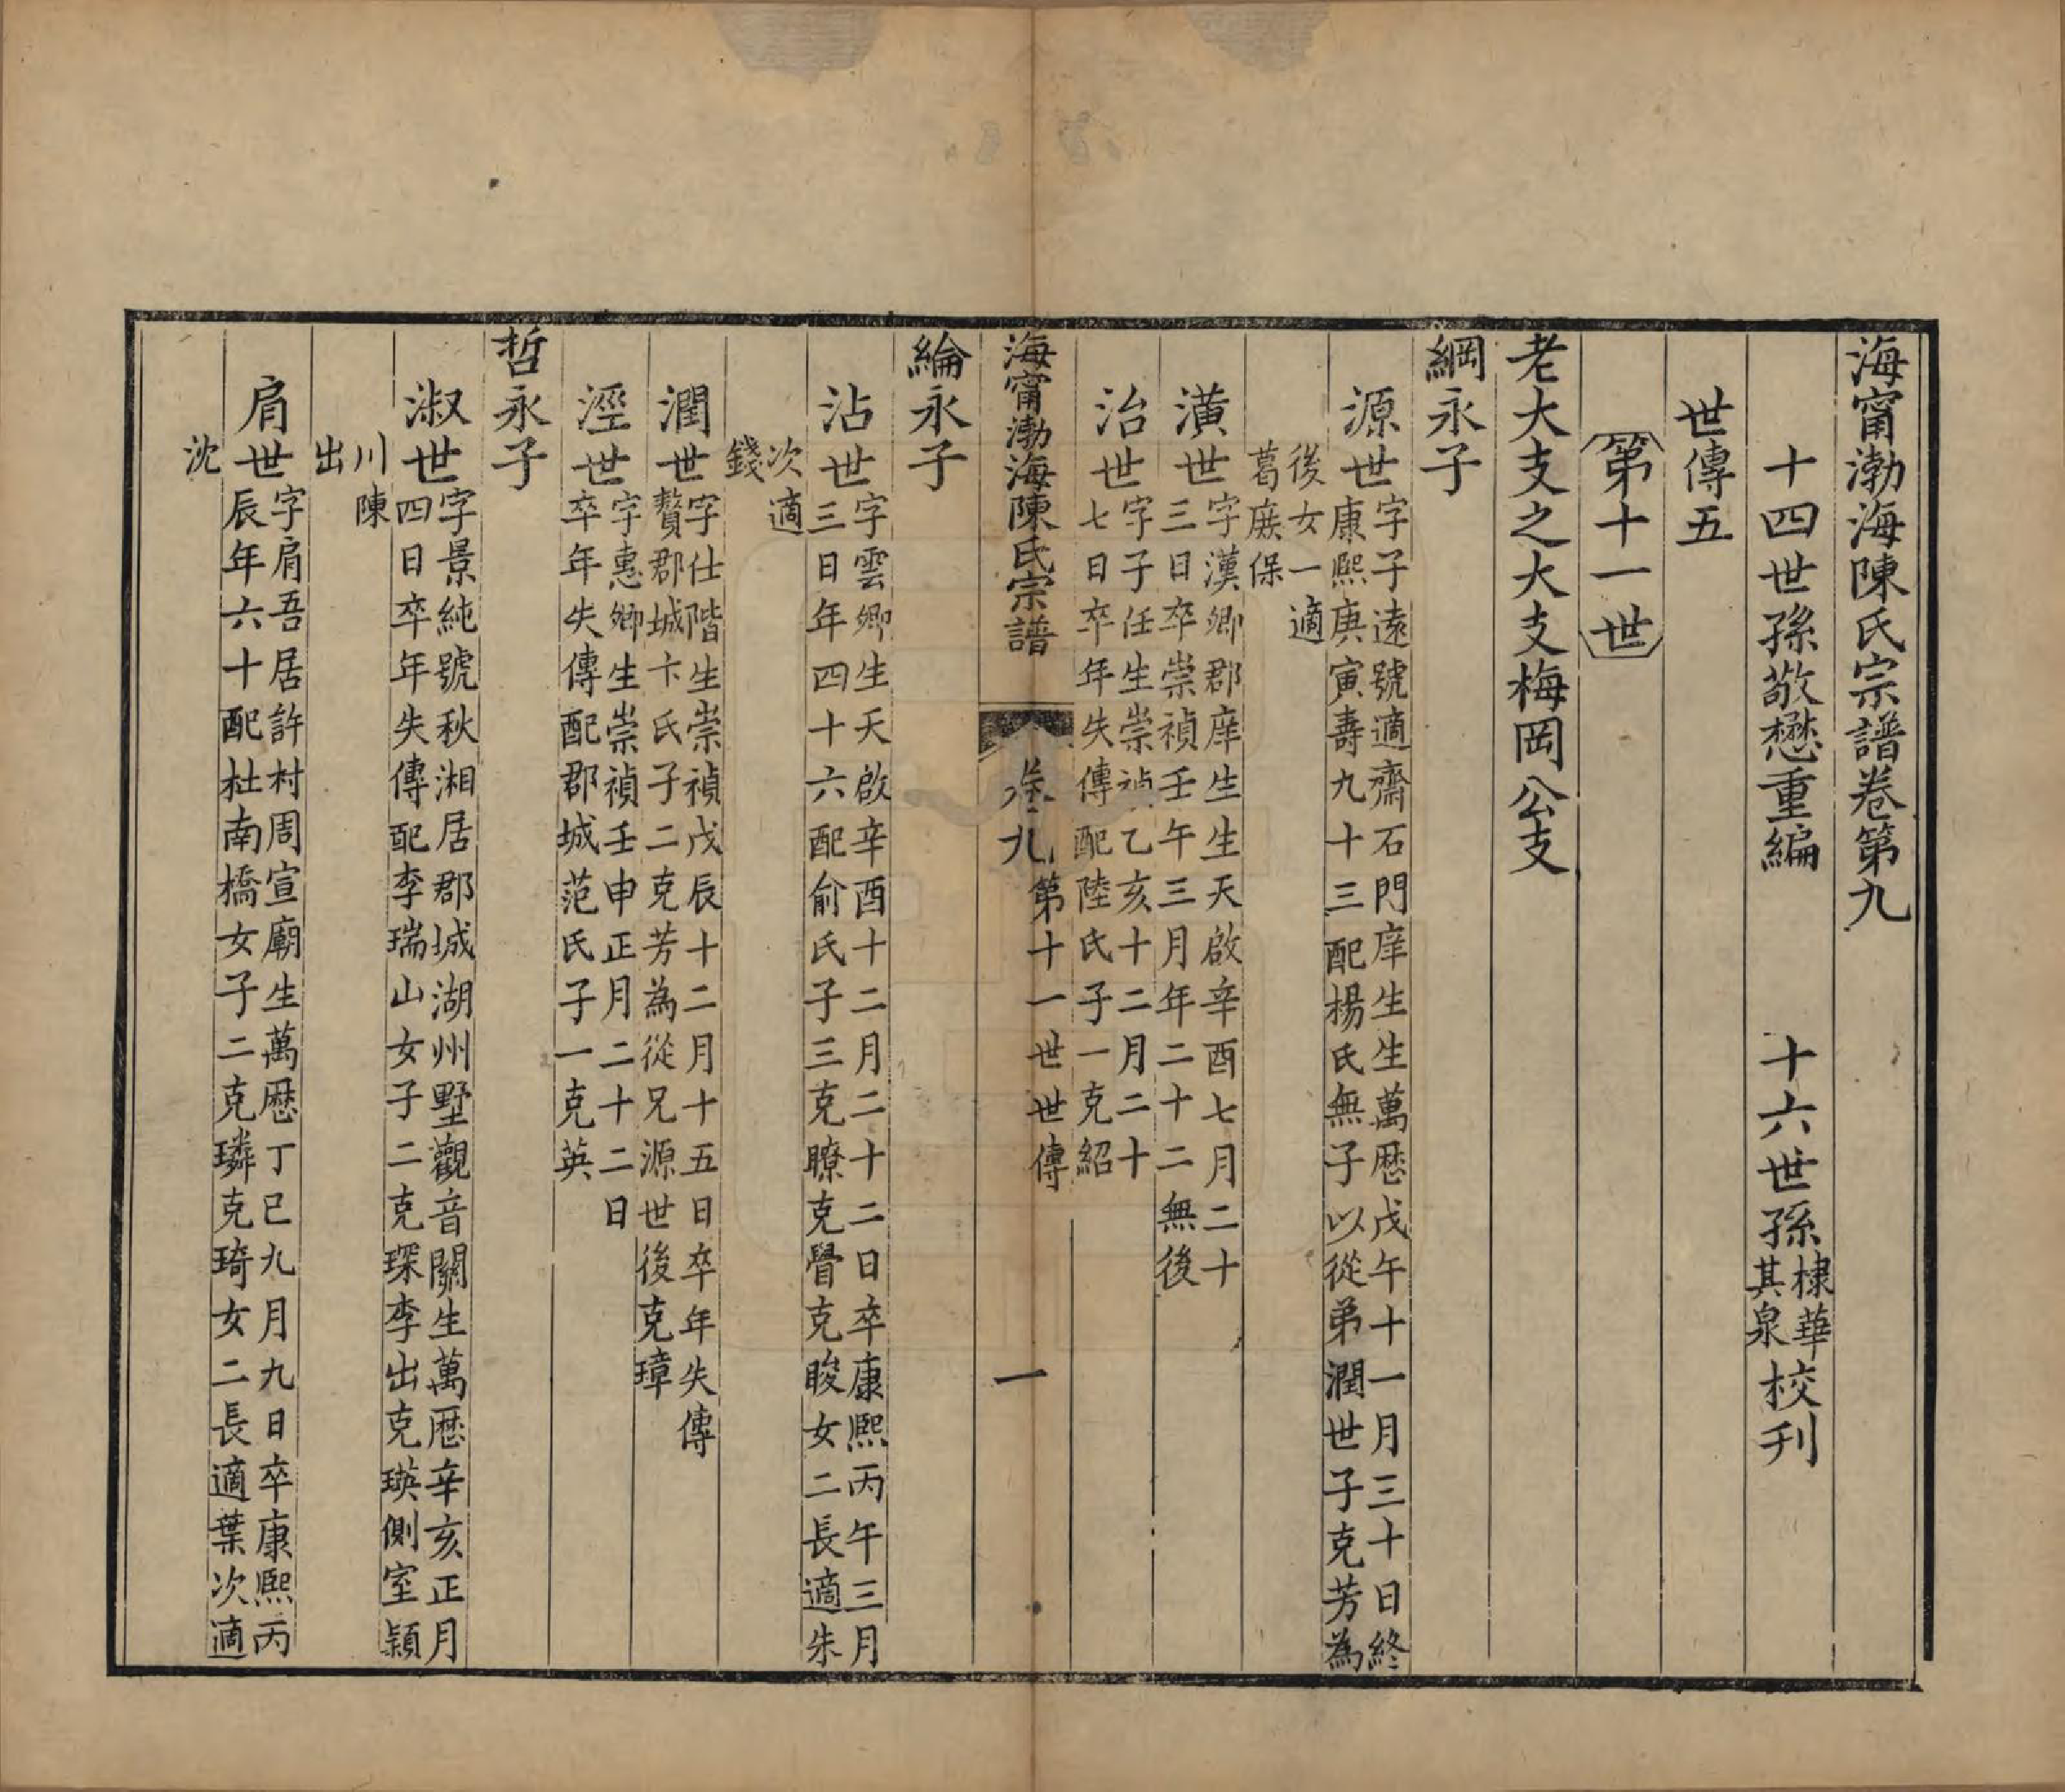 海甯渤海陳氏宗譜卷第九
十四世孫敬懋重編　十六世孫棣華其泉校刊
世傳五
第十一世
老大支之大支梅岡公支
綱永子
源世
字子遠號適齋石門庠生生萬厯戊午十一月三十日終
康熙庚寅壽九十三配楊氏無子以從弟潤世子克芳為
後女一適
葛庭保
潢世
字漢卿郡庠生生天啟辛酉七月二十
三日卒崇禎壬午三月年二十二無後
治世
字子任生崇禎乙亥十二月二十
七日卒年失傳配陸氏子一克紹
海甯渤海陳氏宗譜
卷九
第十一世世傳
一
綸永子
沾世
字雲卿生天啟辛酉十二月二十二日卒康熙丙午三月
三日年四十六配俞氏子三克瞭克瞽克睃女二長適朱
次適
錢
潤世
字仕階生崇禎戊辰十二月十五日卒年失傳
贅郡城卞氏子二克芳為從兄源世後克璋
澄世
字惠卿生崇禎壬申正月二十二日
卒年失傳配郡城范氏子一克英
哲永子
淑世
字景純號秋湘居郡城湖州墅觀音關生萬厯辛亥正月
四日卒年失傳配李瑞山女子二克琛李出克瑛側室潁
川陳
出
肩世
字肩吾居許村周宣廟生萬厯丁巳九月九日卒康熙丙
辰年六十配杜南橋女子二克璘克琦女二長適葉次適
沈